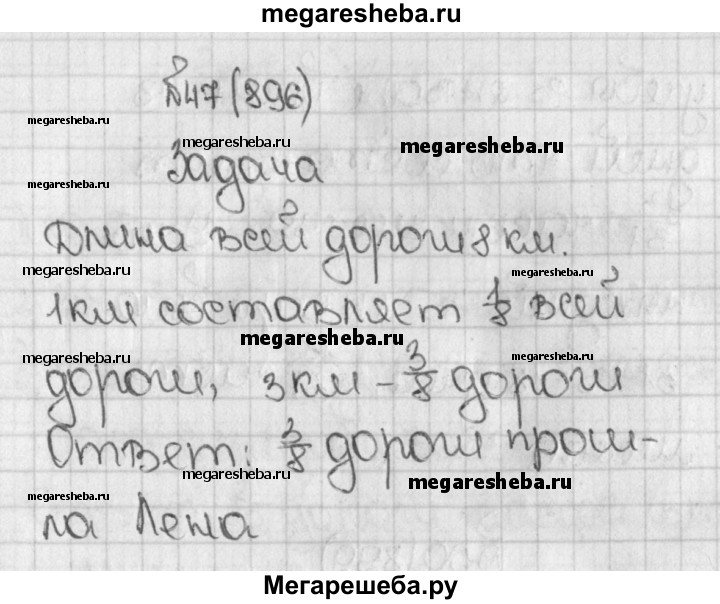 megaresheba.ru
№47(896)
megaresheba.ru
megaresheba.ru
megaresheba.ru
Задача
megaresheba.ru
Длина всей дороги 8 км.
megaresheba.ru
megaresheba.ru
1км составляет 1/8 всей
megaresheba.ru
megaresheba.ru
megaresheba.ru
дороги, 3 км - 3/8 дороги
Ответ: 3/8 дороги прош-
megaresheba.ru
megaresheba.ru
megaresheba.ru
ла Лена
Мегарешеба.ру